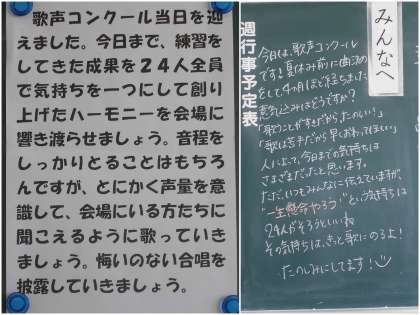 歌声コンクール当日を迎
えました。今日まで、練習を
してきた成果を２４人全員
で気持ちを一つにして創り
上げたハーモニーを会場に
響き渡らせましょう。音程を
しっかりとることはもちろ
んですが、とにかく声量を意
識して、会場にいる方たちに
聞こえるように歌っていき
ましょう。悔いのない合唱を
披露していきましょう。
みんなへ
週行事予定表
今日は、歌声コンクール
です！夏休み前に曲決め
をして4ヶ月ほど経ちました。
意気込みはどうですか？
「歌うことがすきだから、たのしい！」
「歌は苦手だから早くおわってほしい」
人によって、今日までの気持ちは
さまざまだったと思います。
ただ、いつもみんなに伝えていますが、
"一生懸命やろう"という気持ちは
24人がそろうといいね
その気持ちは、きっと歌にのるよ！
たのしみにしてます！